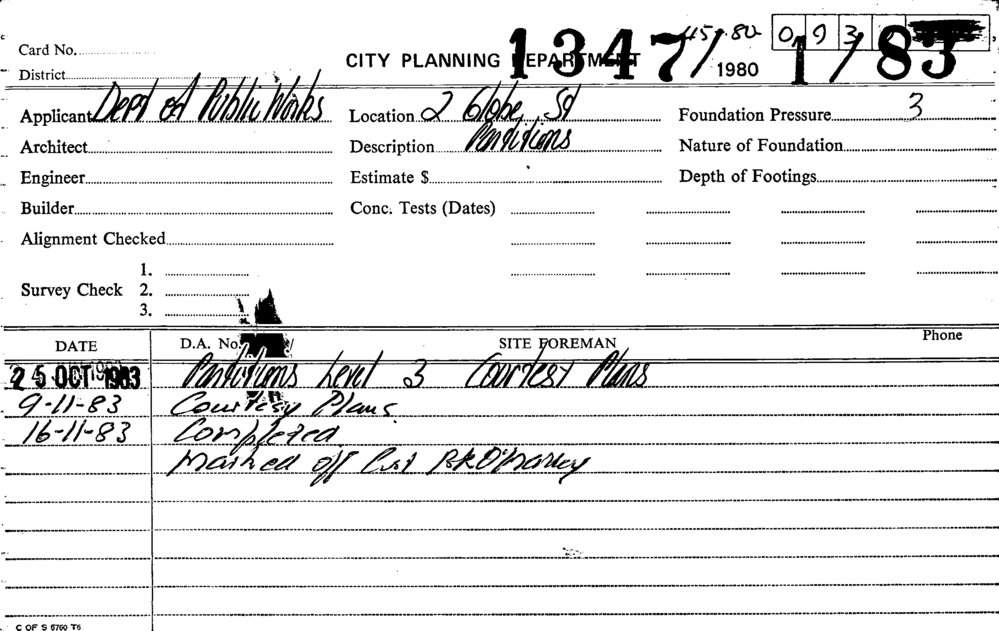 45.80 093
Card No.
CITY PLANNING DEPARTMENT 1347/ 1980 1/83
District
Applicant Dept of Public Works Location 2 Globe St Foundation Pressure 3
Architect Description Partitions Nature of Foundation
Engineer Estimate $ Depth of Footings
Builder Conc. Tests (Dates)
Alignment Checked
1.
Survey Check 2.
3.
DATE D.A. No. / SITE FOREMAN Phone
25 OCT 1983 Partitions Level 3 Courtesy Plans
9-11-83 Courtesy Plans
16-11-83 Completed
Marked off
C OF S 6760 T6